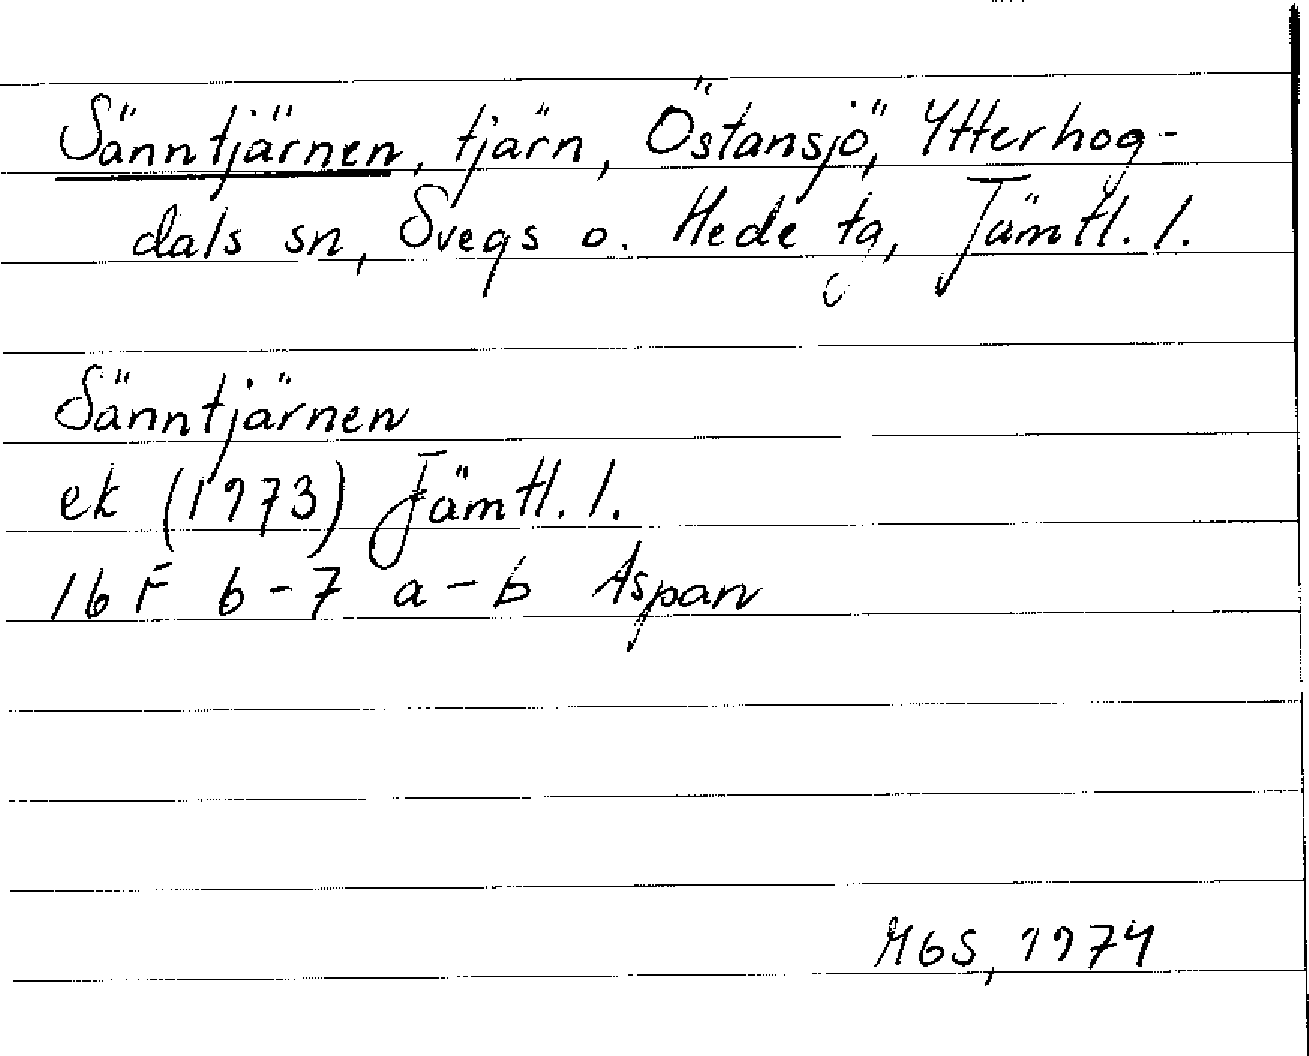 Sänntjärnen, tjärn, Östansjö, Ytterhog-
dals sn, Svegs o. Hede tg, Jämtl. l.
Sänntjärnen
ek (1973) Jämtl. l.
16 F 6-7 a-b Aspan
MbS, 1974